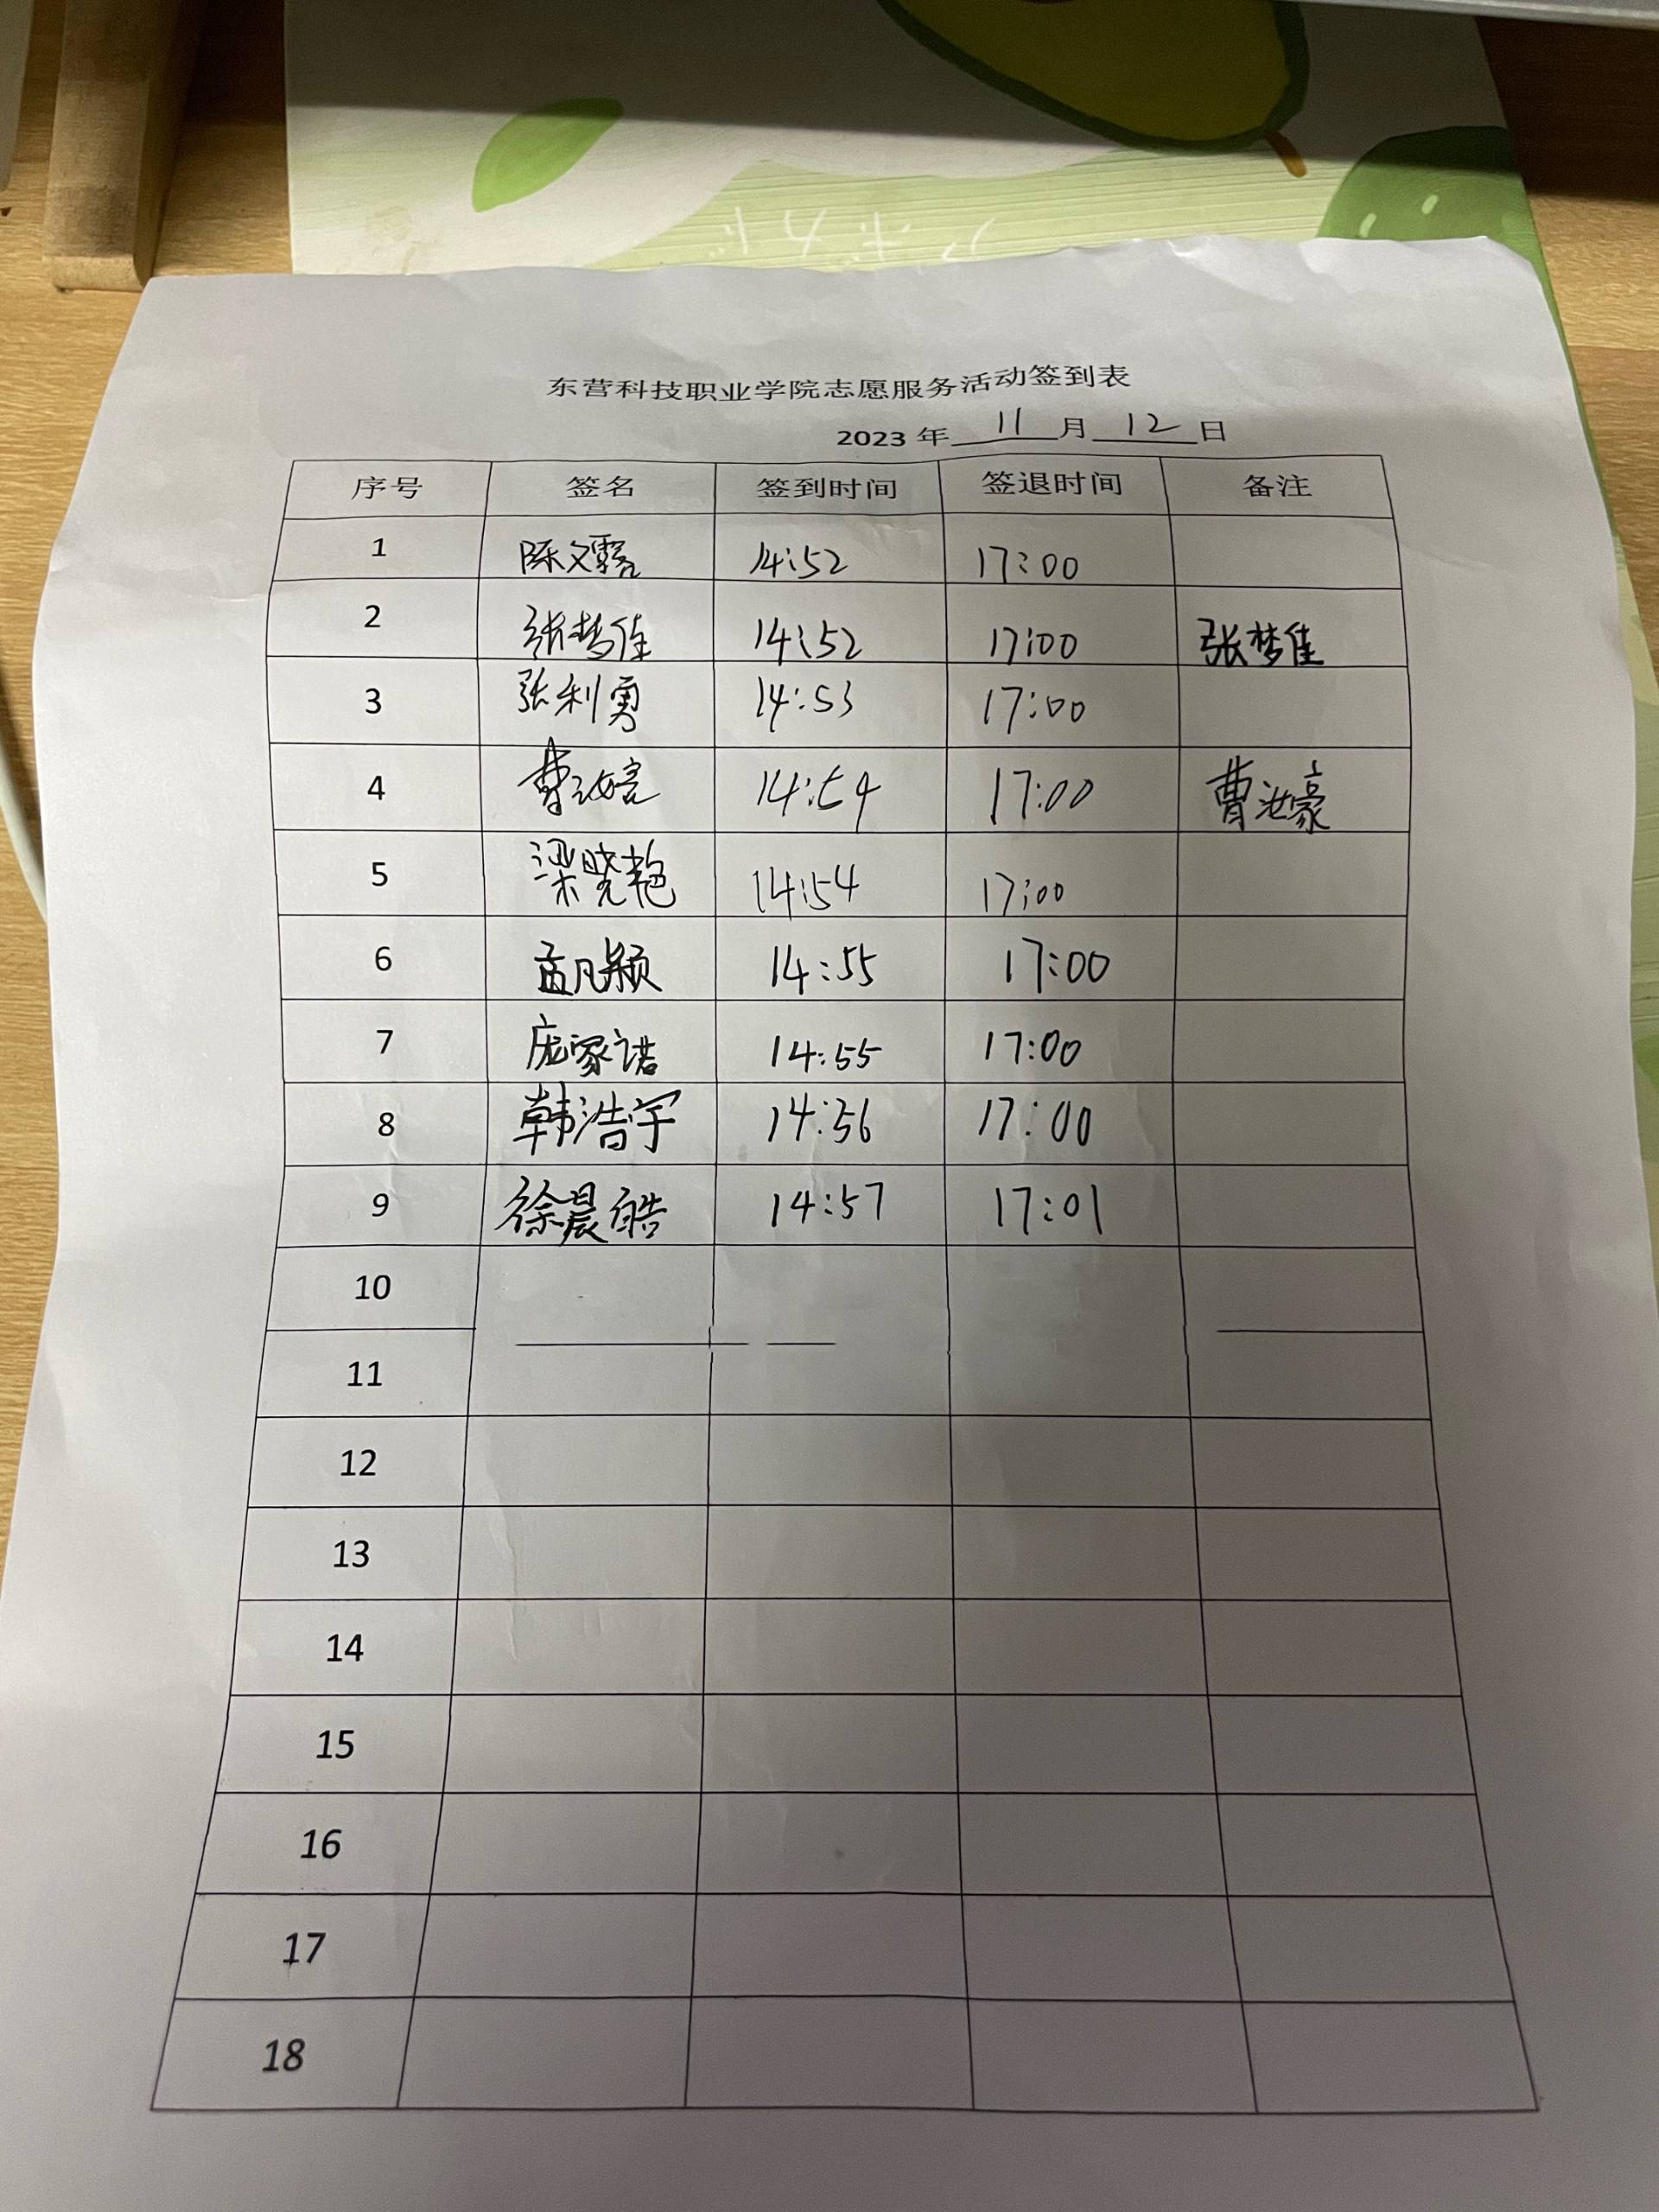 东营科技职业学院志愿服务活动签到表
2023 年 11 月 12 日
序号 签名 签到时间 签退时间 备注
1 陈文露 14:52 17:00
2 张梦佳 14:52 17:00 张梦佳
3 张利勇 14:53 17:00
4 曹汝豪 14:54 17:00 曹汝豪
5 梁晓艳 14:54 17:00
6 孟凡颖 14:55 17:00
7 庞家诺 14:55 17:00
8 韩浩宇 14:56 17:00
9 徐晨皓 14:57 17:01
10
11
12
13
14
15
16
17
18